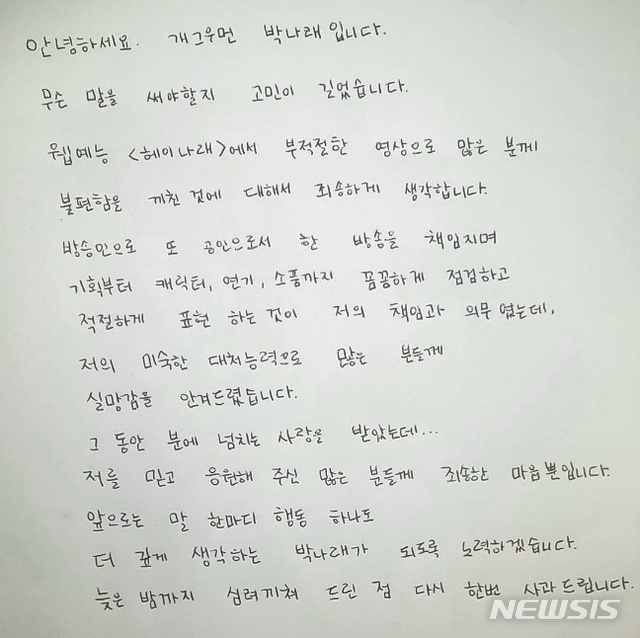 안녕하세요. 개그우먼 박나래입니다.
무슨 말을 써야할지 고민이 길었습니다.
웹예능 <헤이나래>에서 부적절한 영상으로 많은 분께
불편함을 끼친 것에 대해서 죄송하게 생각합니다.
방송인으로 또 공인으로서 한 방송을 책임지며
기획부터 캐릭터, 연기, 소품까지 꼼꼼하게 점검하고
적절하게 표현 하는 것이 저의 책임과 의무 였는데,
저의 미숙한 대처능력으로 많은 분들께
실망감을 안겨드렸습니다.
그 동안 분에 넘치는 사랑을 받았는데...
저를 믿고 응원해 주신 많은 분들께 죄송한 마음뿐입니다.
앞으로는 말 한마디 행동 하나도
더 깊게 생각하는 박나래가 되도록 노력하겠습니다.
늦은 밤까지 심려끼쳐 드린 점 다시 한번 사과드립니다.
NEWSIS